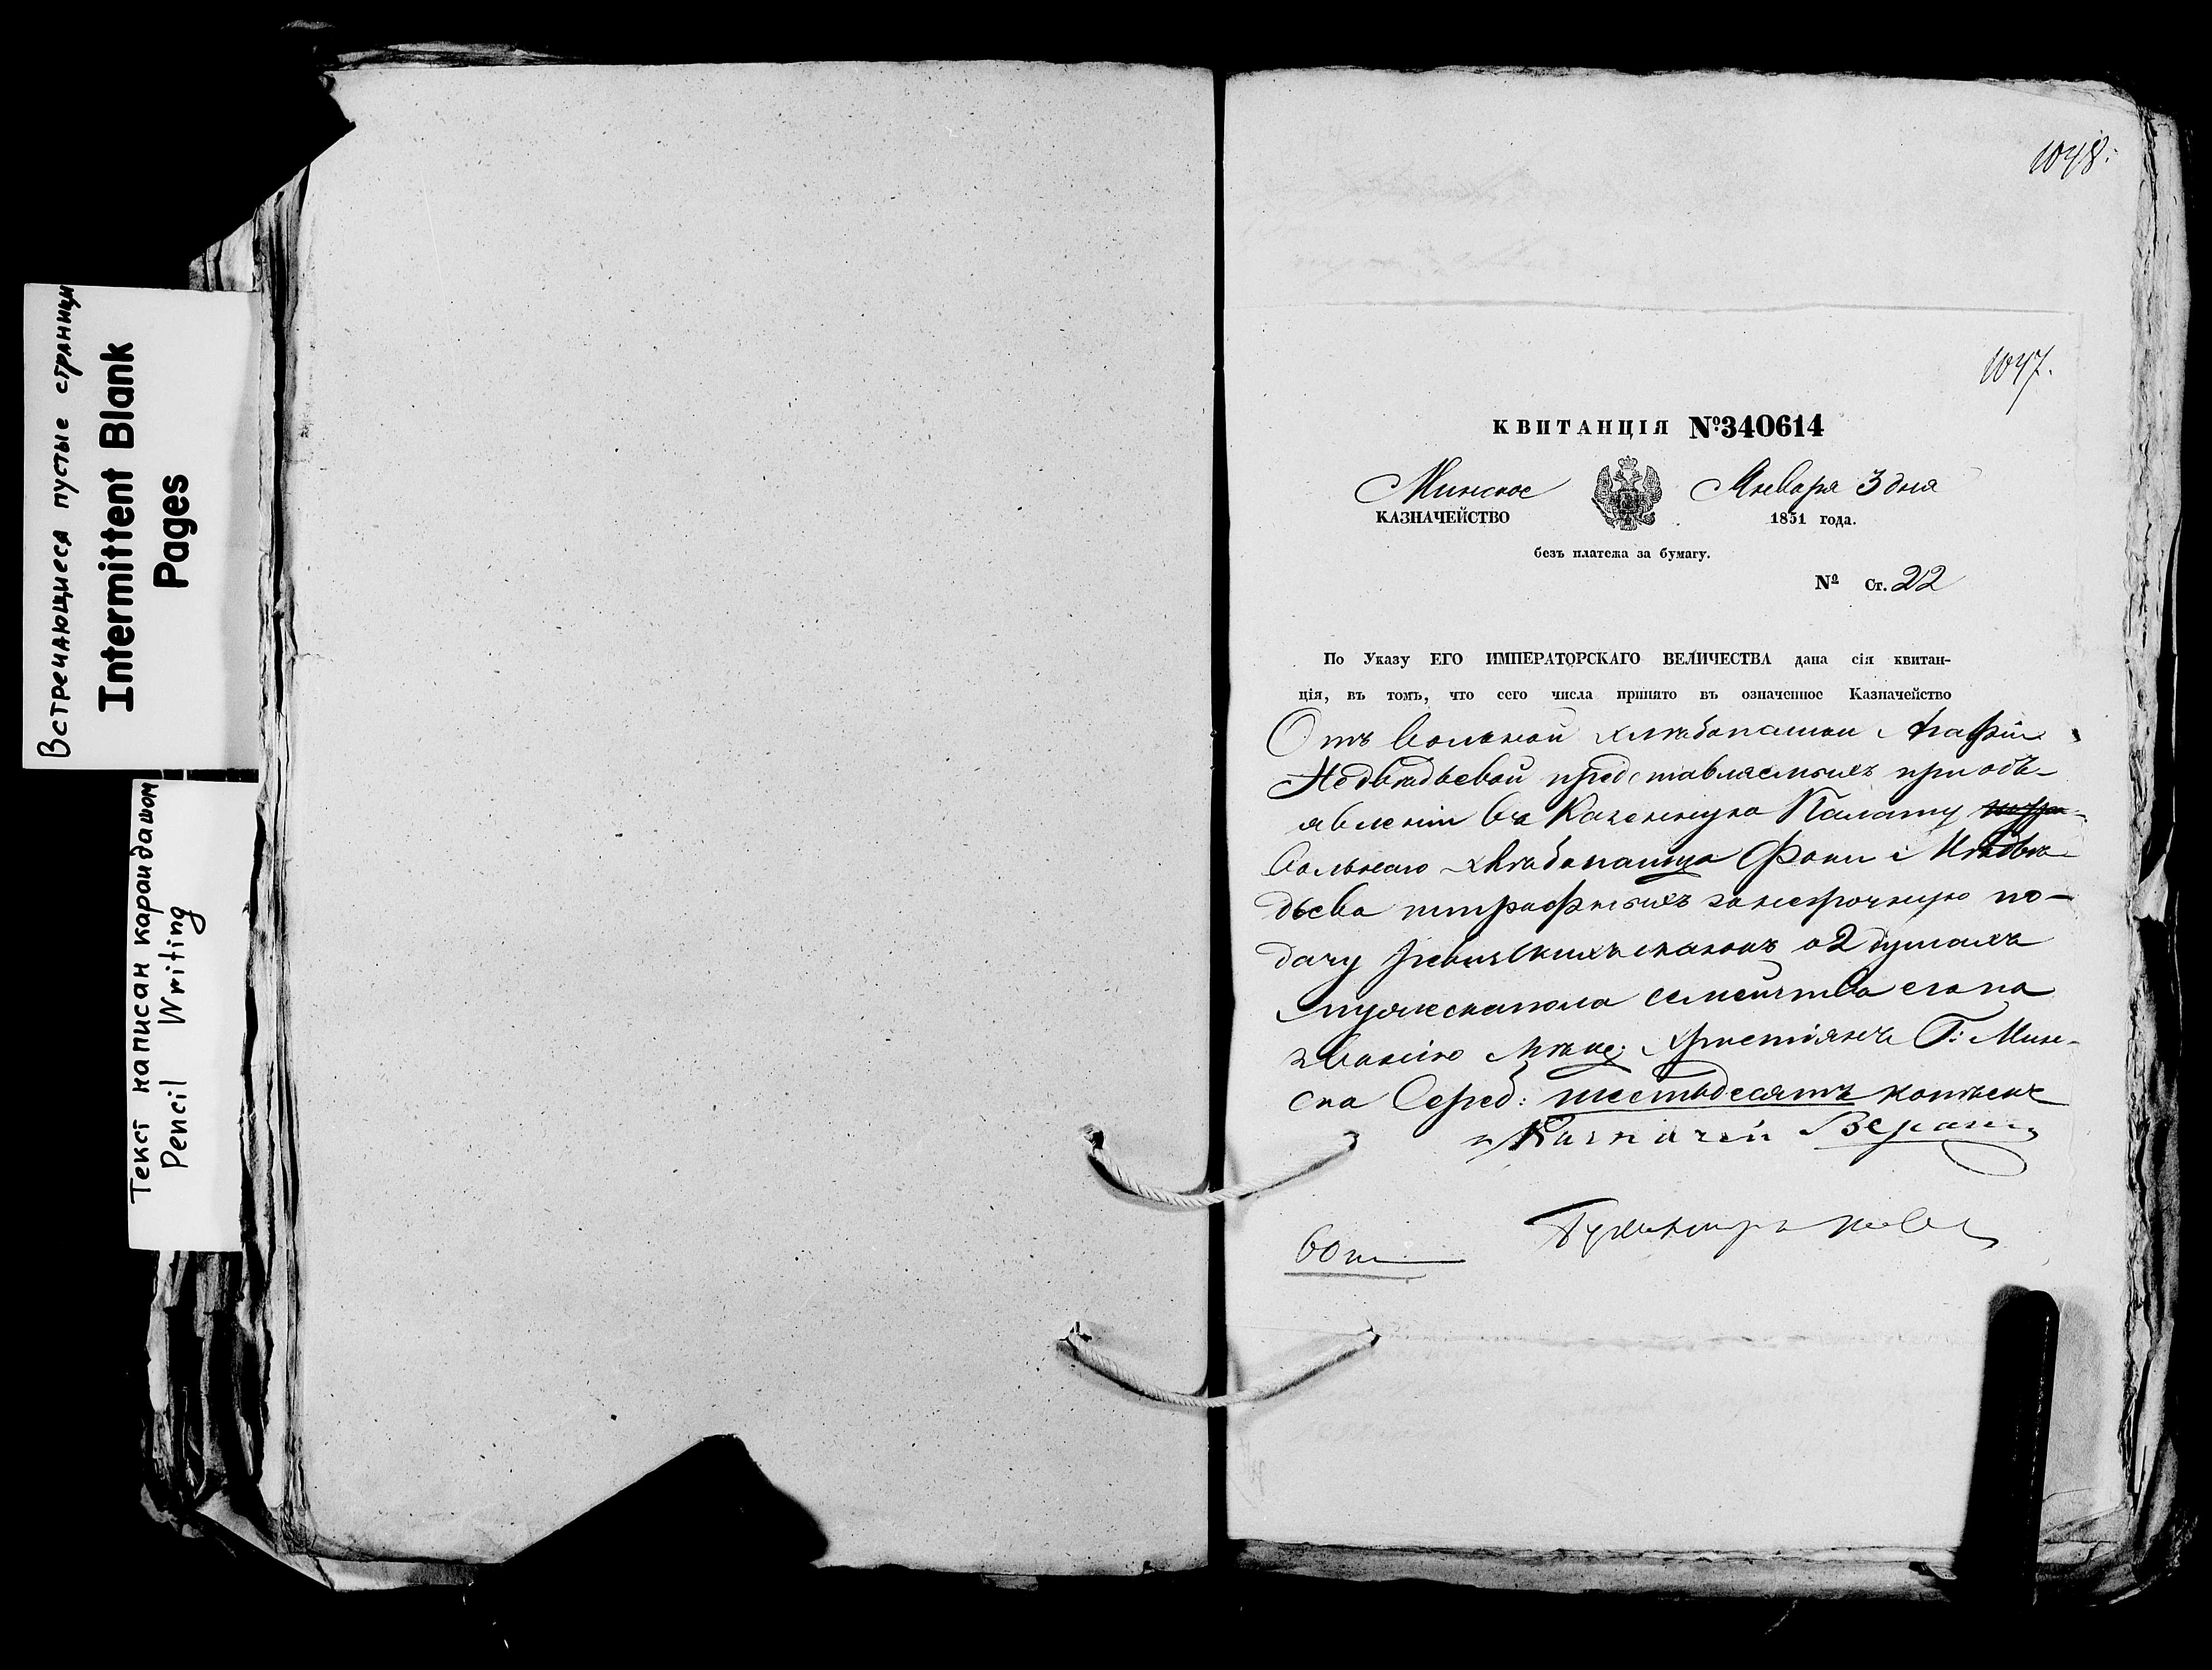 Встречающиеся пустые страницы
Intermittent Blank
Pages
Текст написан карандашом
Pencil Writing
1048.
1047.
КВИТАНЦІЯ №340614
Минское Января 3 дня
КАЗНАЧЕЙСТВО 1851 года.
безъ платежа за бумагу.
№ Ст. 22
По Указу ЕГО ИМПЕРАТОРСКАГО ВЕЛИЧЕСТВА дана сія квитан-
ція, въ томъ, что сего числа принято въ означенное Казначейство
Отъ вольной хлѣбопашки Агафіи
Медвѣдьевой представляемыхъ при объ-
явленіи въ Казенную Палату
вольнаго хлѣбопашца Фоки Медвѣ-
дьева штрафныхъ за несрочную по-
дачу ревизскихъ сказокъ о 2 душахъ
мужеска пола семейства его по
званію христіянъ Г: Мин-
ска Сереб: шестьдесятъ копѣекъ
Казначей
Бухгалтеръ
60 к